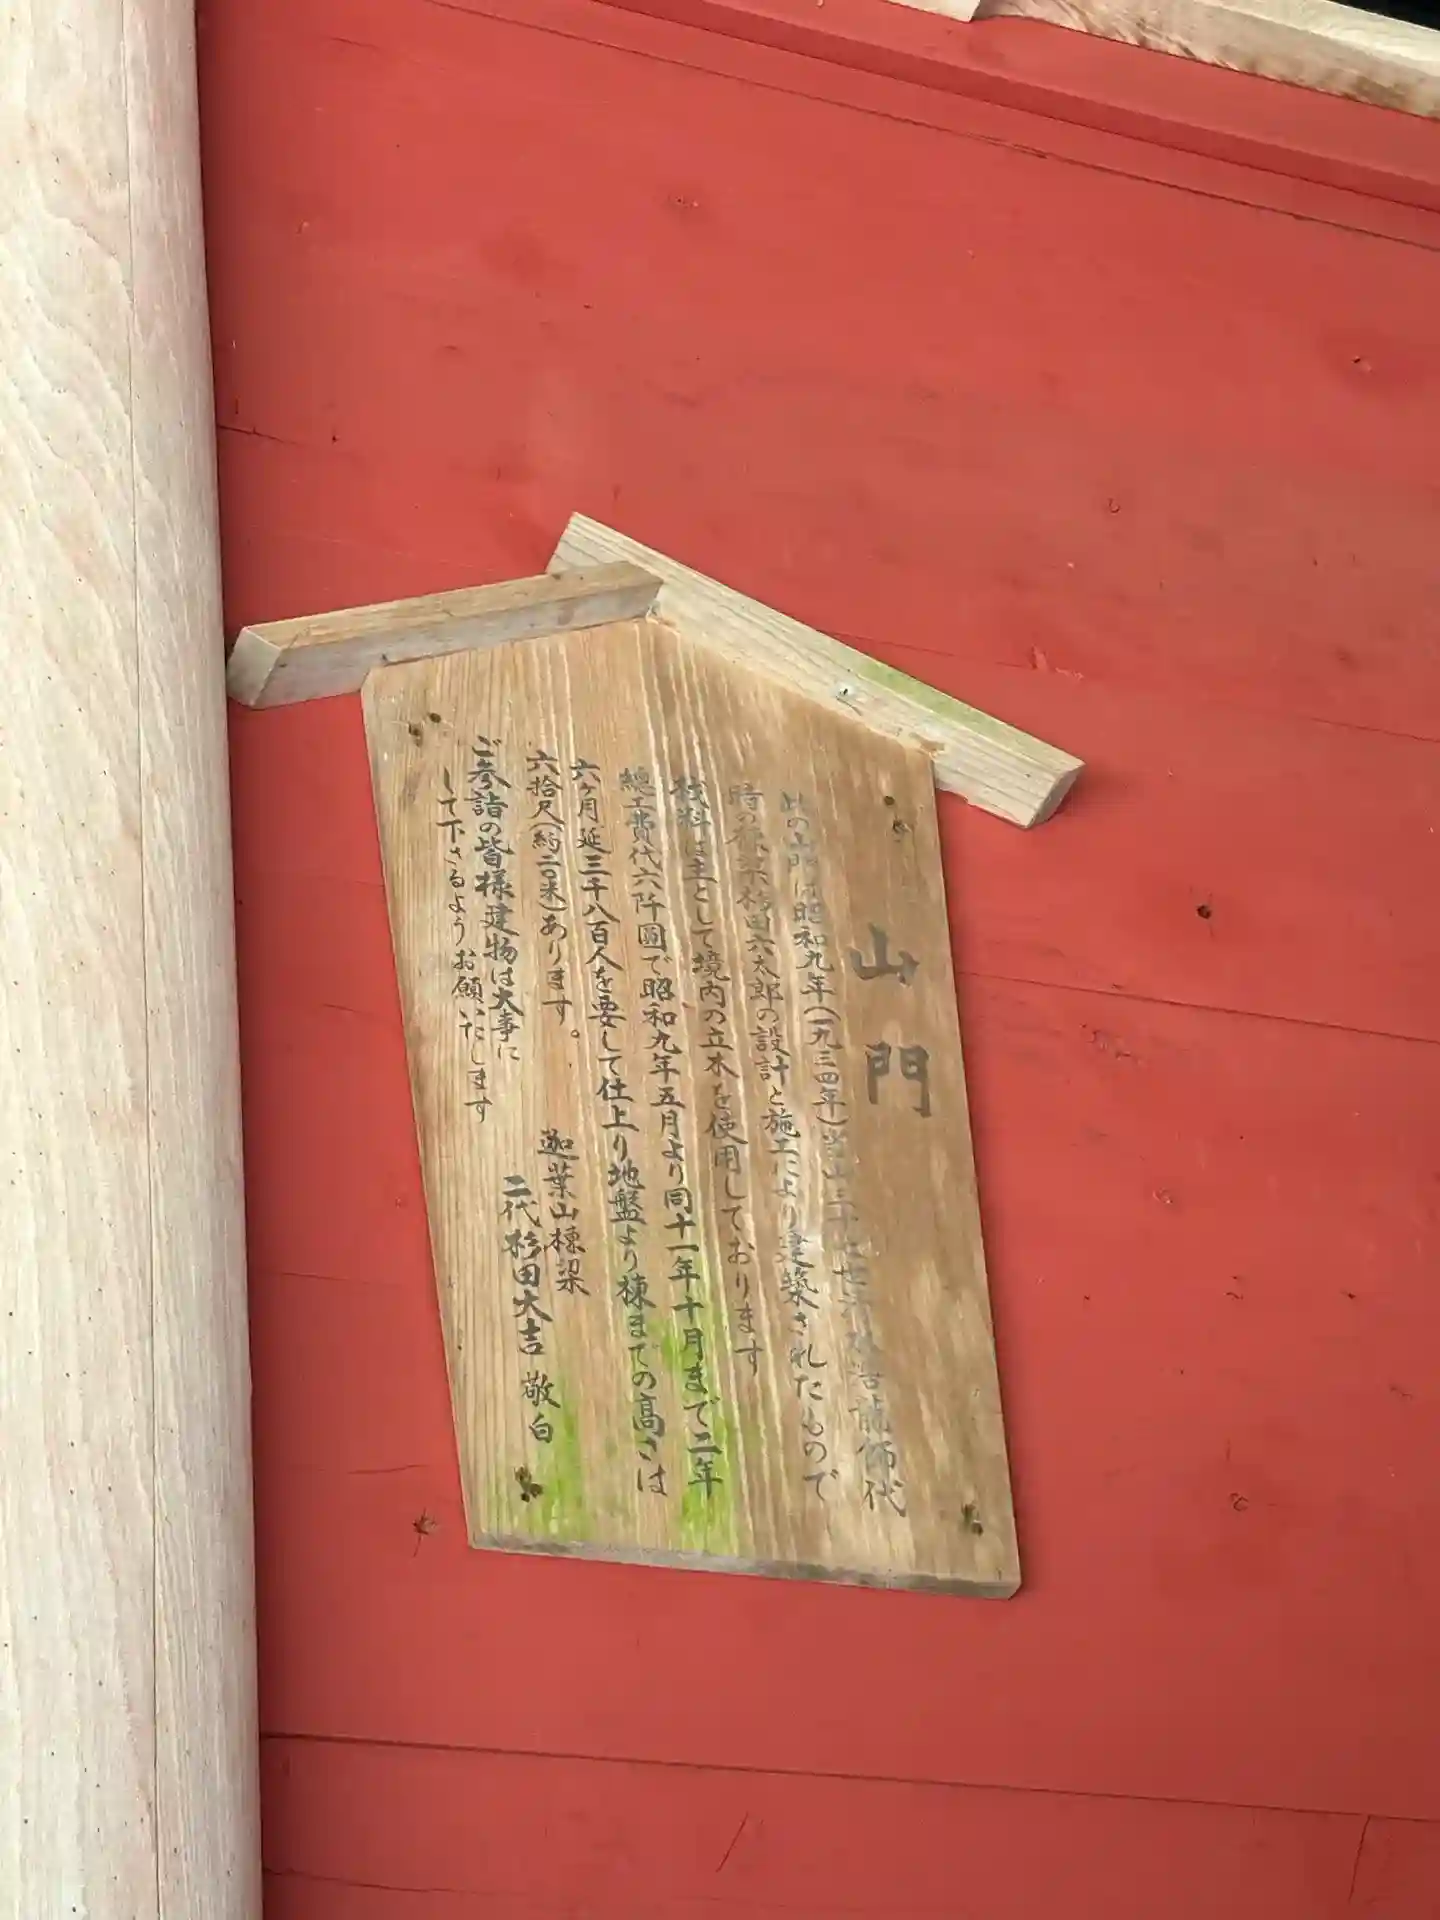 山門
此の山門は昭和九年(一九三四年)当山三十七世 浩龍師代
時の棟梁杉田六太郎の設計と施工により建築されたもので
材料は主として境内の立木を使用しております
總工費代六阡圓で昭和九年五月より同十一年十月まで二年
六ヶ月延三千八百人を要して仕上り地盤より棟までの高さは
六拾尺(約二〇米)あります。
迦葉山棟梁
二代杉田大吉 敬白
ご参詣の皆様建物は大事に
して下さるようお願いたします